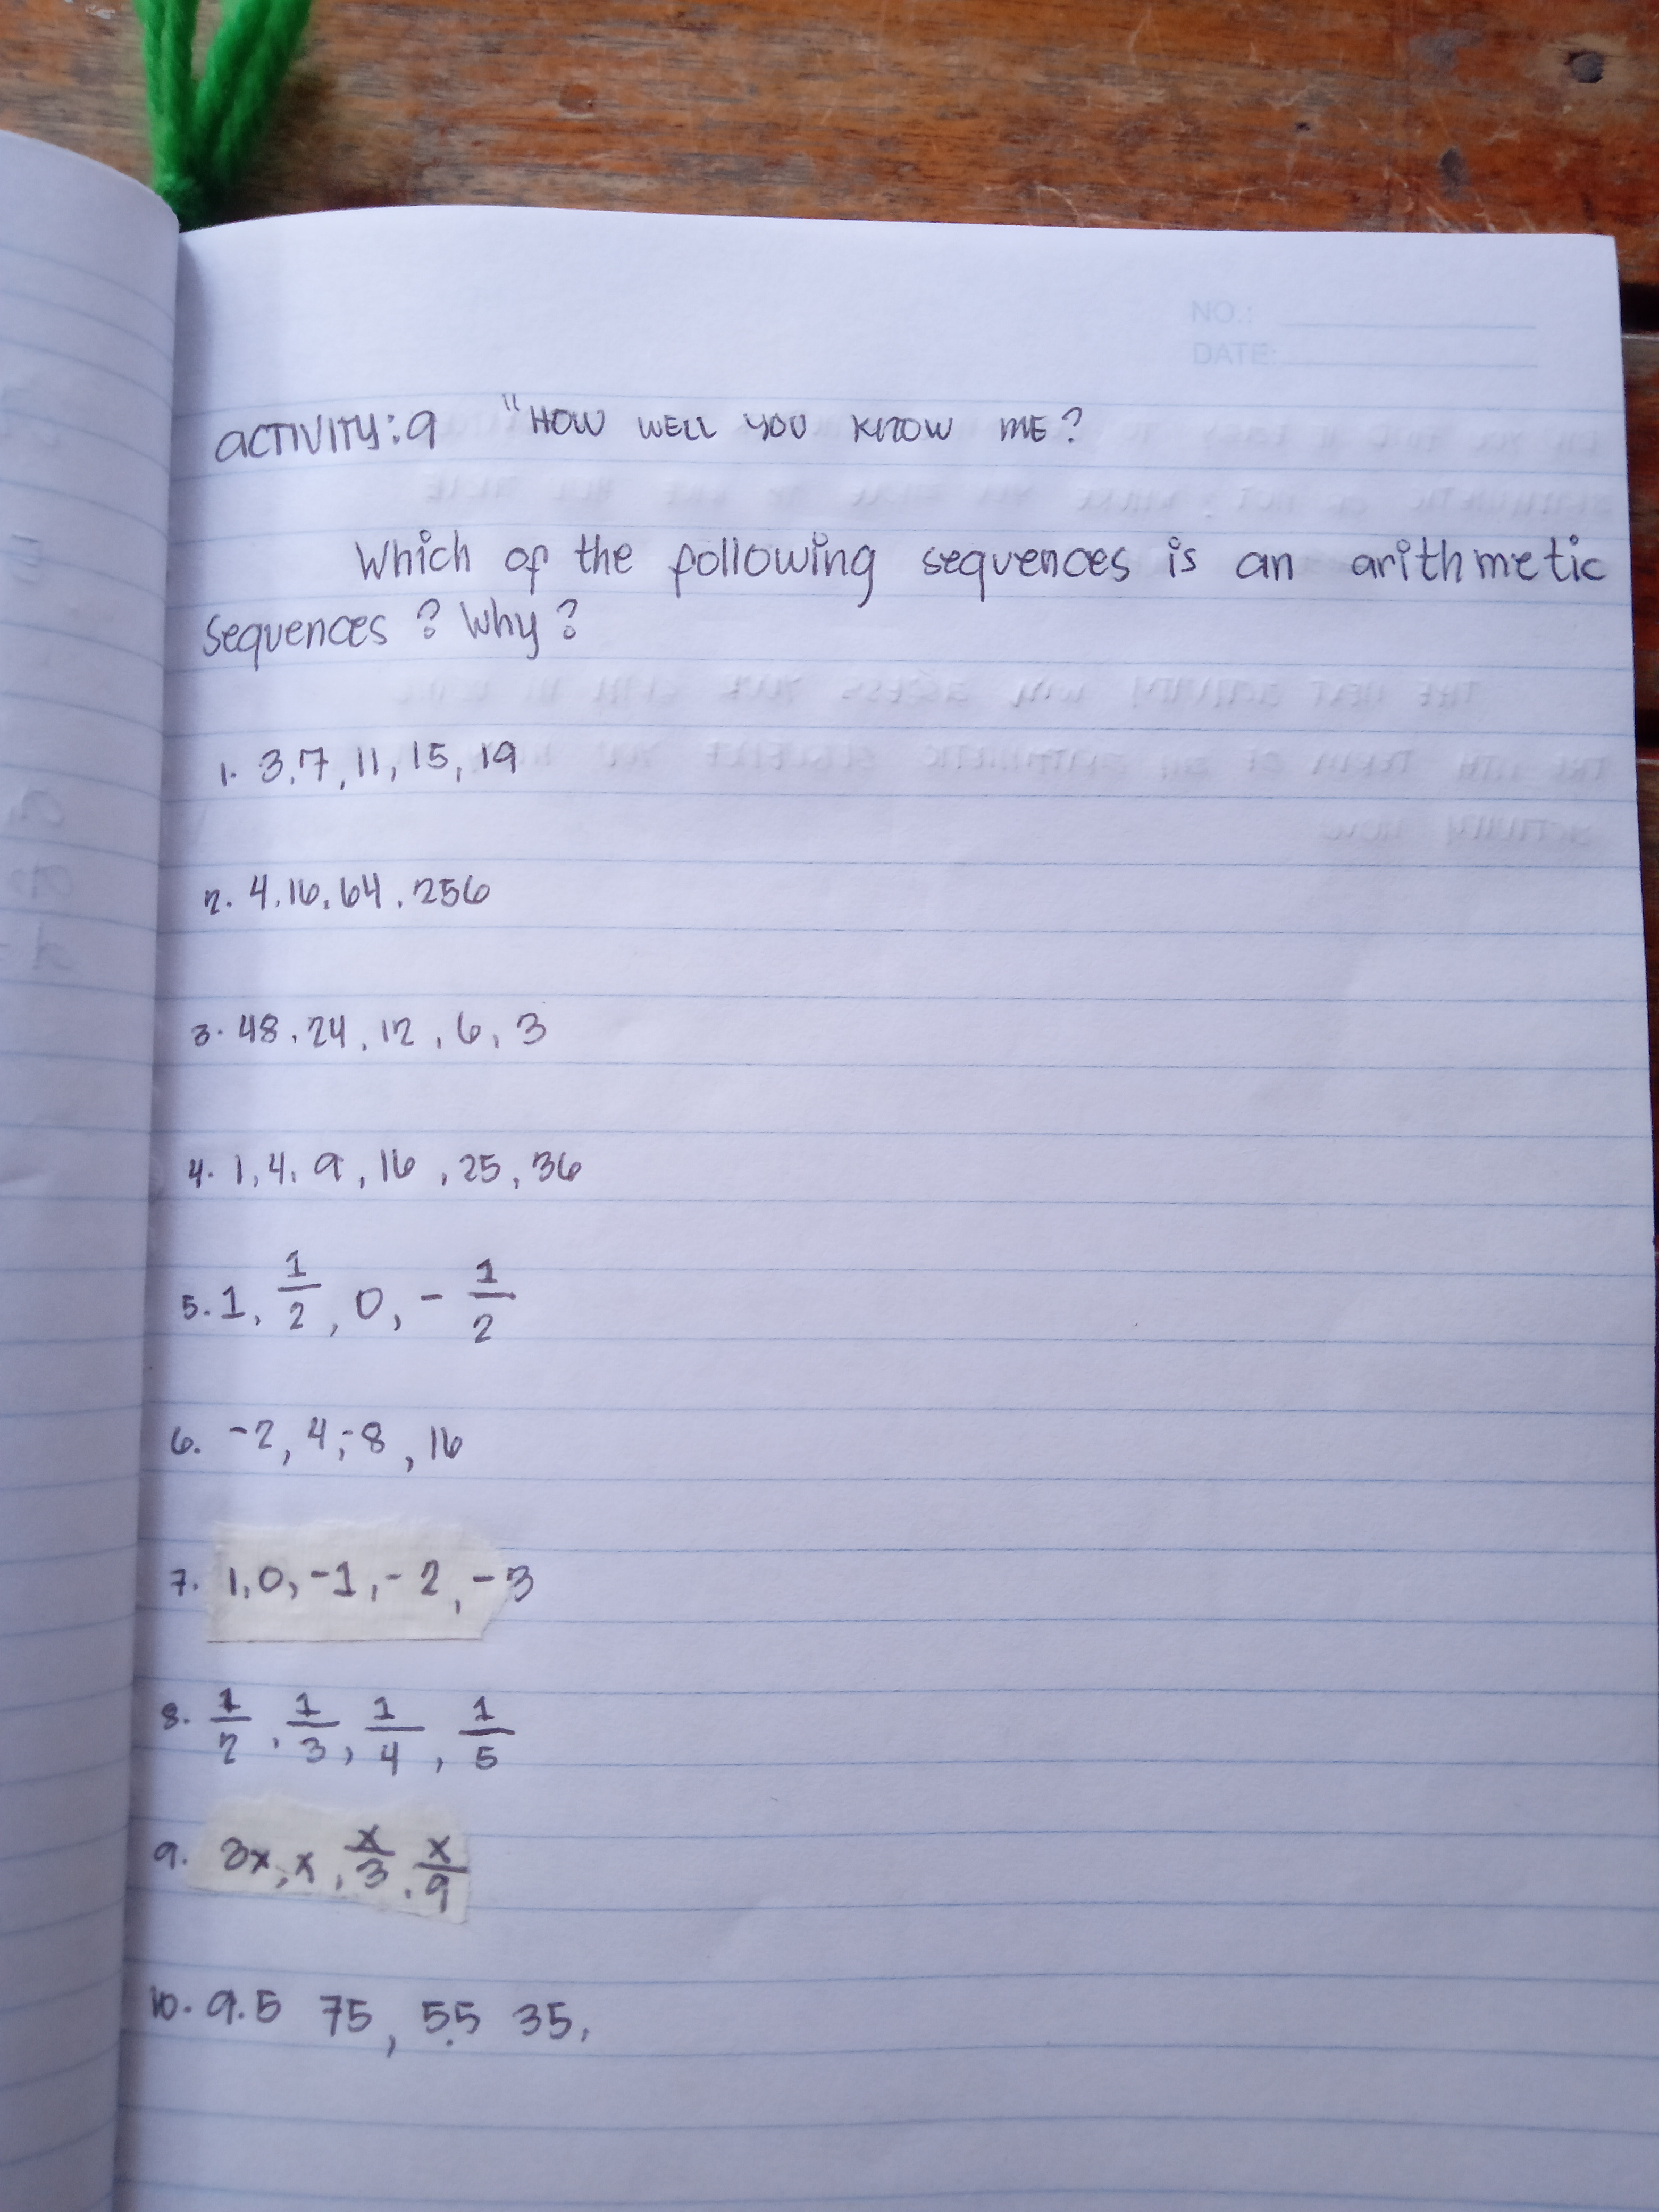 NO.:
DATE:
ACTIVITY: 9 "HOW WELL YOU KNOW ME?
Which of the following sequences is an arithmetic
sequences? Why?
1. 3, 7, 11, 15, 19
2. 4, 16, 64, 256
3. 48, 24, 12, 6, 3
4. 1, 4, 9, 16, 25, 36
5. 1, 1/2, 0, - 1/2
6. -2, 4, -8, 16
7. 1, 0, -1, -2, -3
8. 1/2, 1/3, 1/4, 1/5
9. 3x, x, x/3, x/9
10. 9.5 75, 5.5 35,